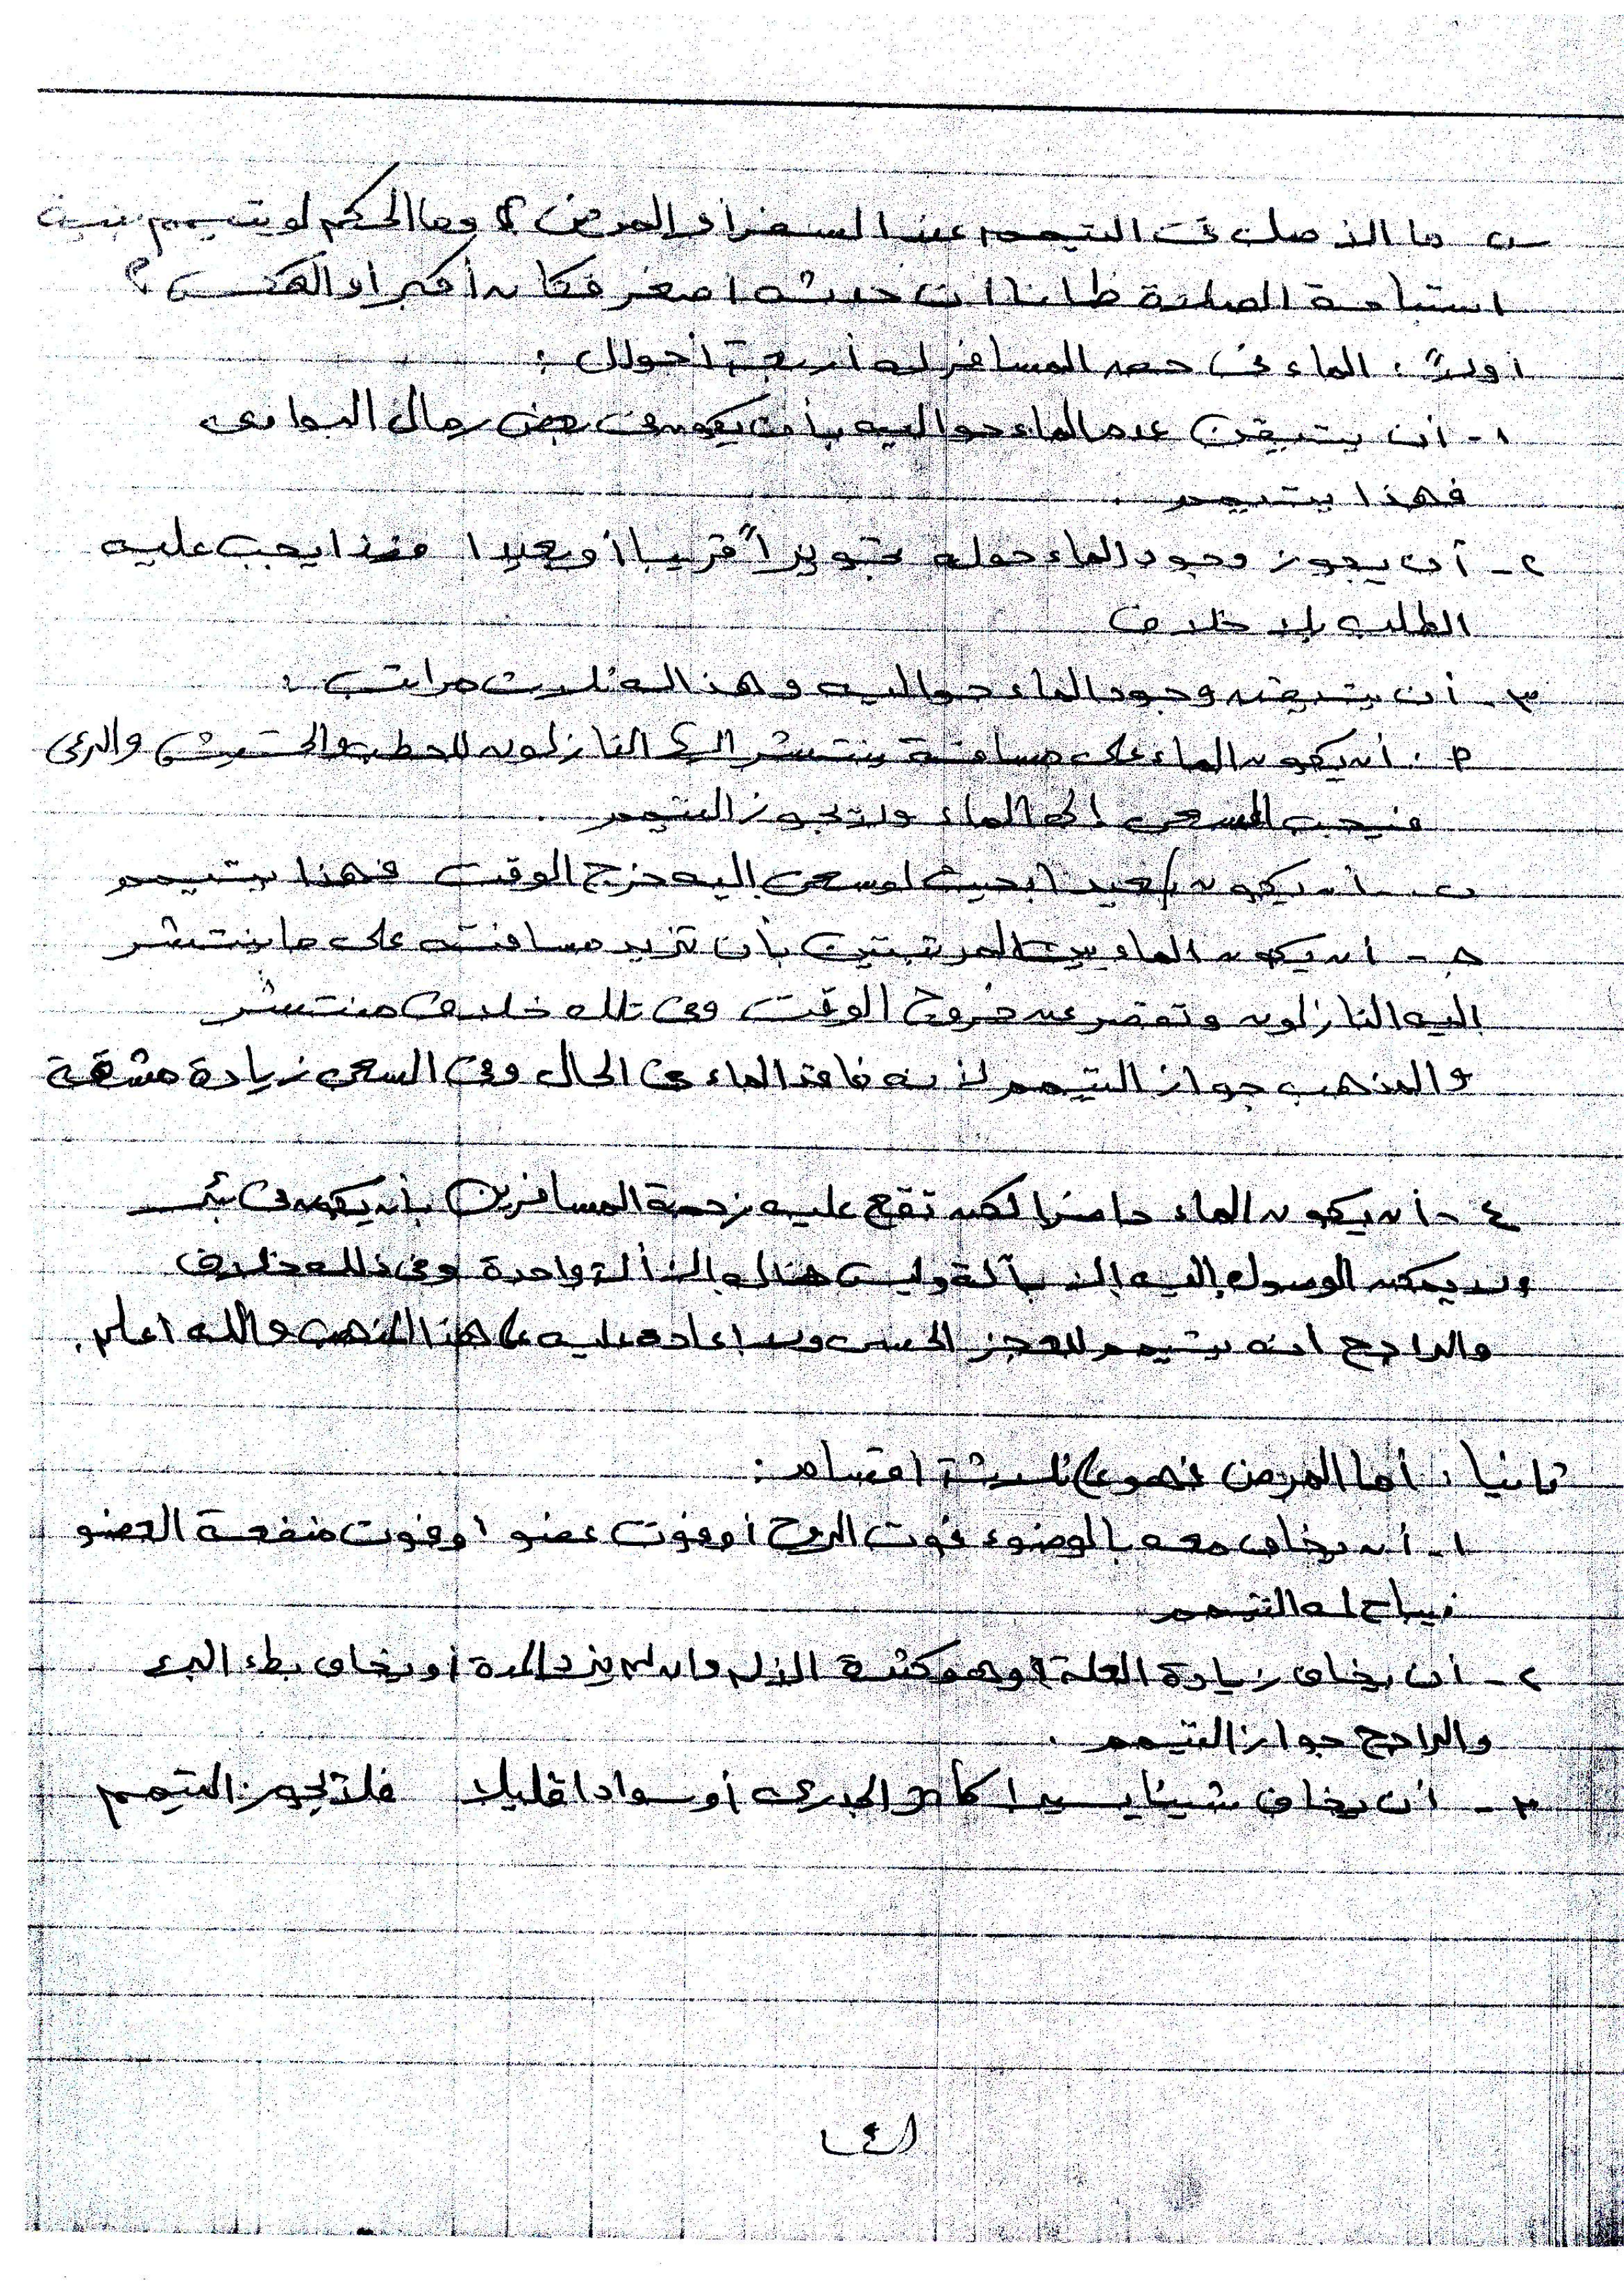 س ما الأصل فى التيمم عند السفر أو المرض ؟ وما الحكم لو تيمم بنية
استباحة الصلاة ظانا أن حدثه أصغر فكان أكبر أو العكس ؟
أولاً : الماء فى حق المسافر له أربعة أحوال :
١- أن يتيقن عدم الماء حواليه بأن يكون فى بعض رمال البوادى
فهذا يتيمم .
٢- أن يجوز وجود الماء حوله تجويزاً قريبا أو بعيدا فهذا يجب عليه
الطلب بلا خلاف
٣- أن يتيقن وجود الماء حواليه وهذا له ثلاث مراتب :
٢ . أن يكون الماء على مسافة ينتشر إليها النازلون للحطب والحشيش والرعى
فيجب السعى إلى الماء ولا يجوز التيمم .
ب - أن يكون بعيدا بحيث لو سعى إليه خرج الوقت فهذا يتيمم
جـ - أن يكون الماء بين المرتبتين بأن تزيد مسافته على ما ينتشر
إليه النازلون وتقصر عن خروج الوقت وفى تلك خلاف منتشر
والمذهب جواز التيمم لأنه فاقد الماء فى الحال وفى السعى زيادة مشقة
٤- أن يكون الماء حاضرا لكن تقع عليه زحمة المسافرين بأن يكون فى بئر
ولا يمكن الوصول إليه إلا بآلة وليس هناك إلا آلة واحدة وفى ذلك خلاف
والراجح أنه يتيمم للعجز الحسى ولا إعادة عليه على هذا المذهب والله أعلم .
ثانيا : أما المرض فهو على ثلاثة أقسام :
١- أن يخاف معه بالوضوء فوت الروح أو فوت عضو أو فوت منفعة العضو
فيباح له التيمم
٢- أن يخاف زيادة العلة وهو كثرة الألم وإن لم يزد المدة أو يخاف بطء البرء
والراجح جواز التيمم .
٣- أن يخاف شينا يسيرا كأثر الجدرى أو سوادا قليلا فلا يجوز التيمم